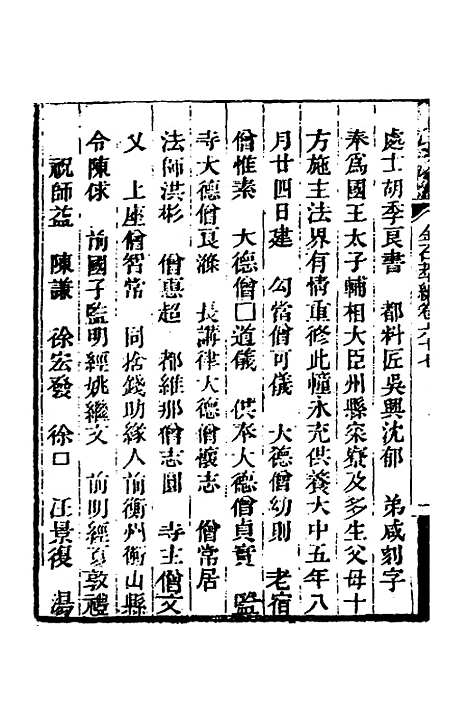 金石萃編卷六十七
處士胡季良書　都料匠吳興沈郁　弟咸刻字
奉爲國王太子輔相大臣州縣寀寮及多生父母十
方施主法界有情重修此幢永充供養大中五年八
月廿四日建　勾當僧可儀　大德僧幼則　老宿
僧惟素　大德僧囗道儀　供奉大德僧貞實　監
寺大德僧良滌　長講律大德僧懷志　僧常居
法師洪彬　僧惠超　都維那僧志圓　寺主僧文
乂　上座僧智常　同捨錢助緣人前衡州衡山縣
令陳俅　前國子監明經姚繼文　前明經夏敦禮
祝師益　陳謙　徐宏發　徐囗　汪景復　湯